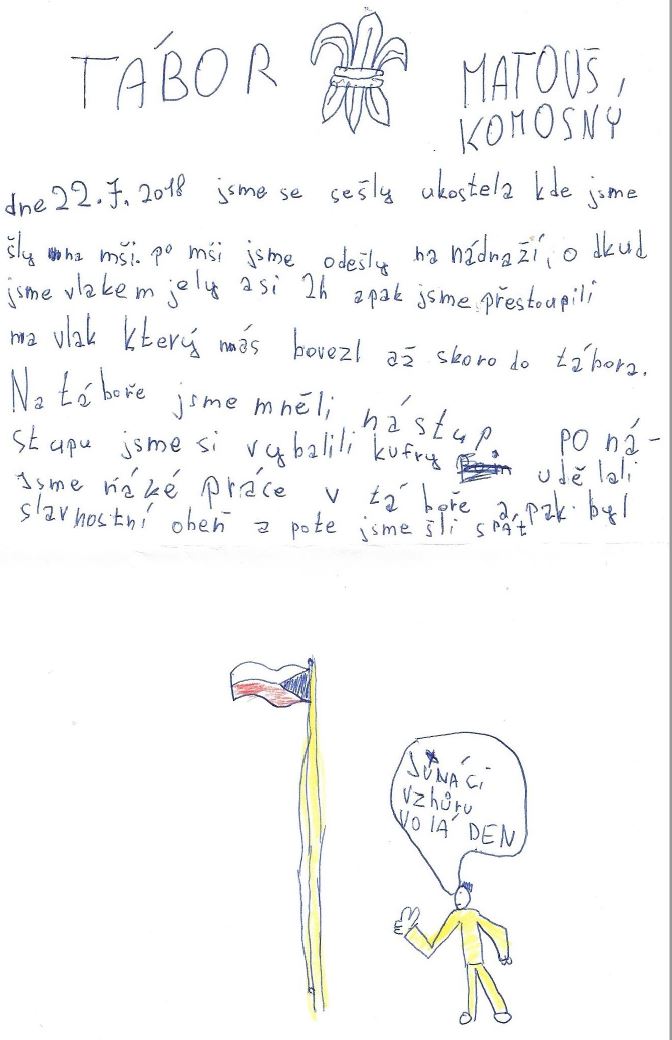 TÁBOR
MATOUŠ
KOMOSNÝ
dne 22.7.2018 jsme se sešly ukostela kde jsme
šly na mši. po mši jsme odešly na nádraží, o dkud
jsme vlakem jely asi 2h apak jsme přestoupili
na vlak který nás bovezl až skoro do tábora.
Na táboře jsme mněli nástup. PO ná-
stupu jsme si vybalili kufry udělali
jsme ňáké práce v táboře a pak byl
slavnostní oheň a pote jsme šli spát
JUNÁCI
vzhůru
VOLÁ DEN